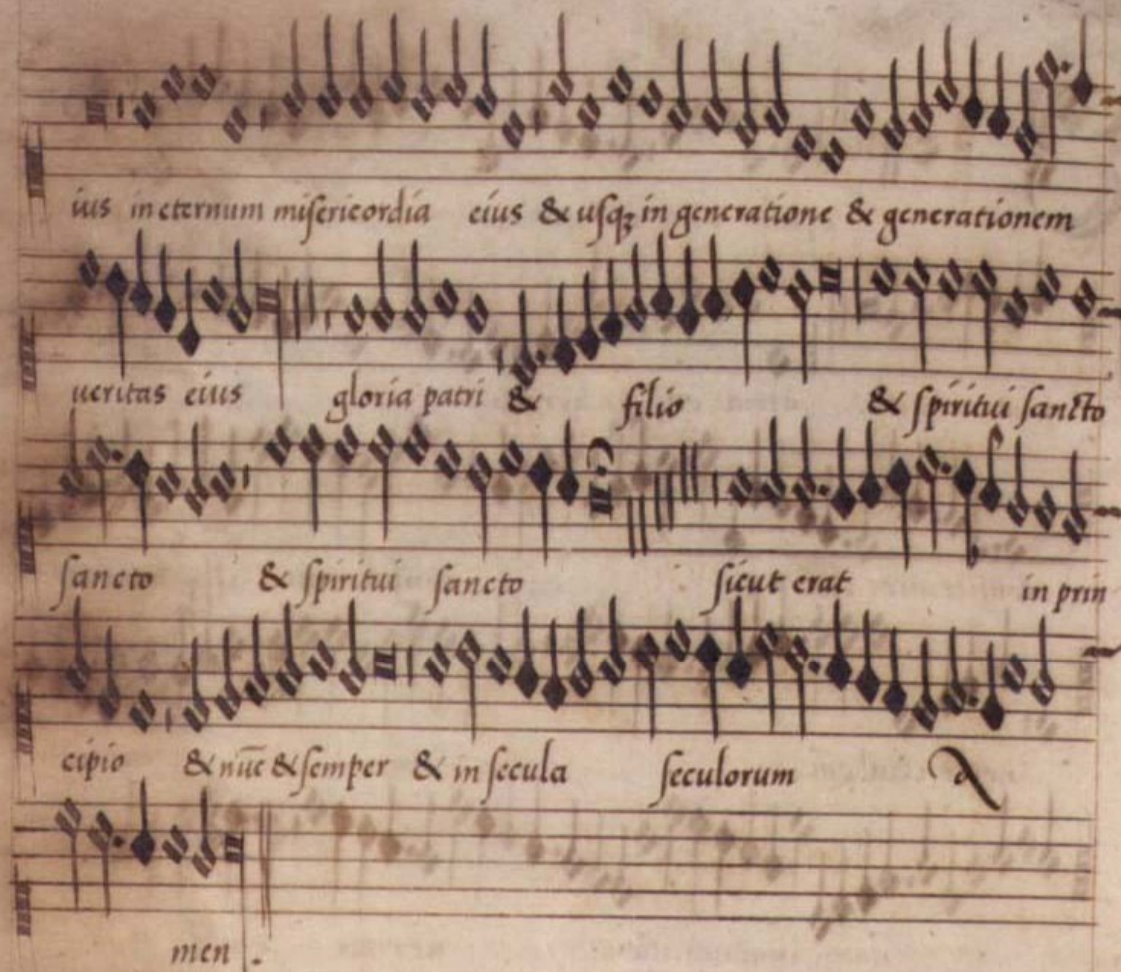 ius in eternum misericordia eius & usqꝫ in generatione & generationem
ueritas eius gloria patri & filio & spiritui sancto
sancto & spiritui sancto sicut erat in prin
cipio & nūc & semper & in secula seculorum a
men .